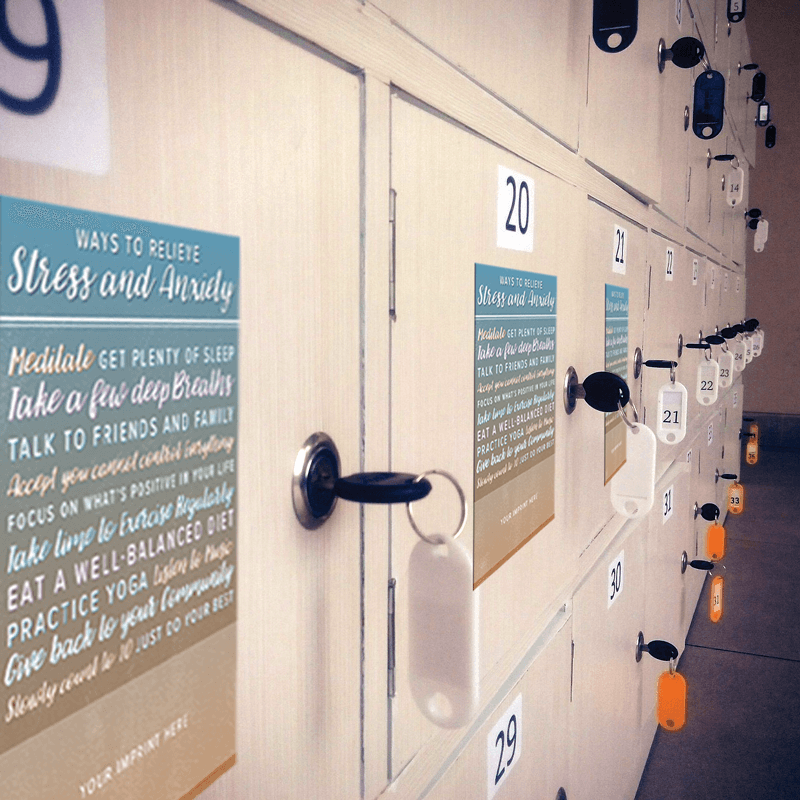 9
WAYS TO RELIEVE
Stress and Anxiety
Meditate GET PLENTY OF SLEEP
Take a few deep Breaths
TALK TO FRIENDS AND FAMILY
Accept you cannot control Everything
FOCUS ON WHAT'S POSITIVE IN YOUR LIFE
Take time to Exercise Regularly
EAT A WELL-BALANCED DIET
PRACTICE YOGA Listen to Music
Give back to your Community
Slowly count to 10 JUST DO YOUR BEST
YOUR IMPRINT HERE
20
WAYS TO RELIEVE
Stress and Anxiety
Meditate GET PLENTY OF SLEEP
Take a few deep Breaths
TALK TO FRIENDS AND FAMILY
Accept you cannot control Everything
FOCUS ON WHAT'S POSITIVE IN YOUR LIFE
Take time to Exercise Regularly
EAT A WELL-BALANCED DIET
PRACTICE YOGA Listen to Music
Give back to your Community
Slowly count to 10 JUST DO YOUR BEST
YOUR IMPRINT HERE
21
22
5
14
21
22
23
24
31
30
29
33
32